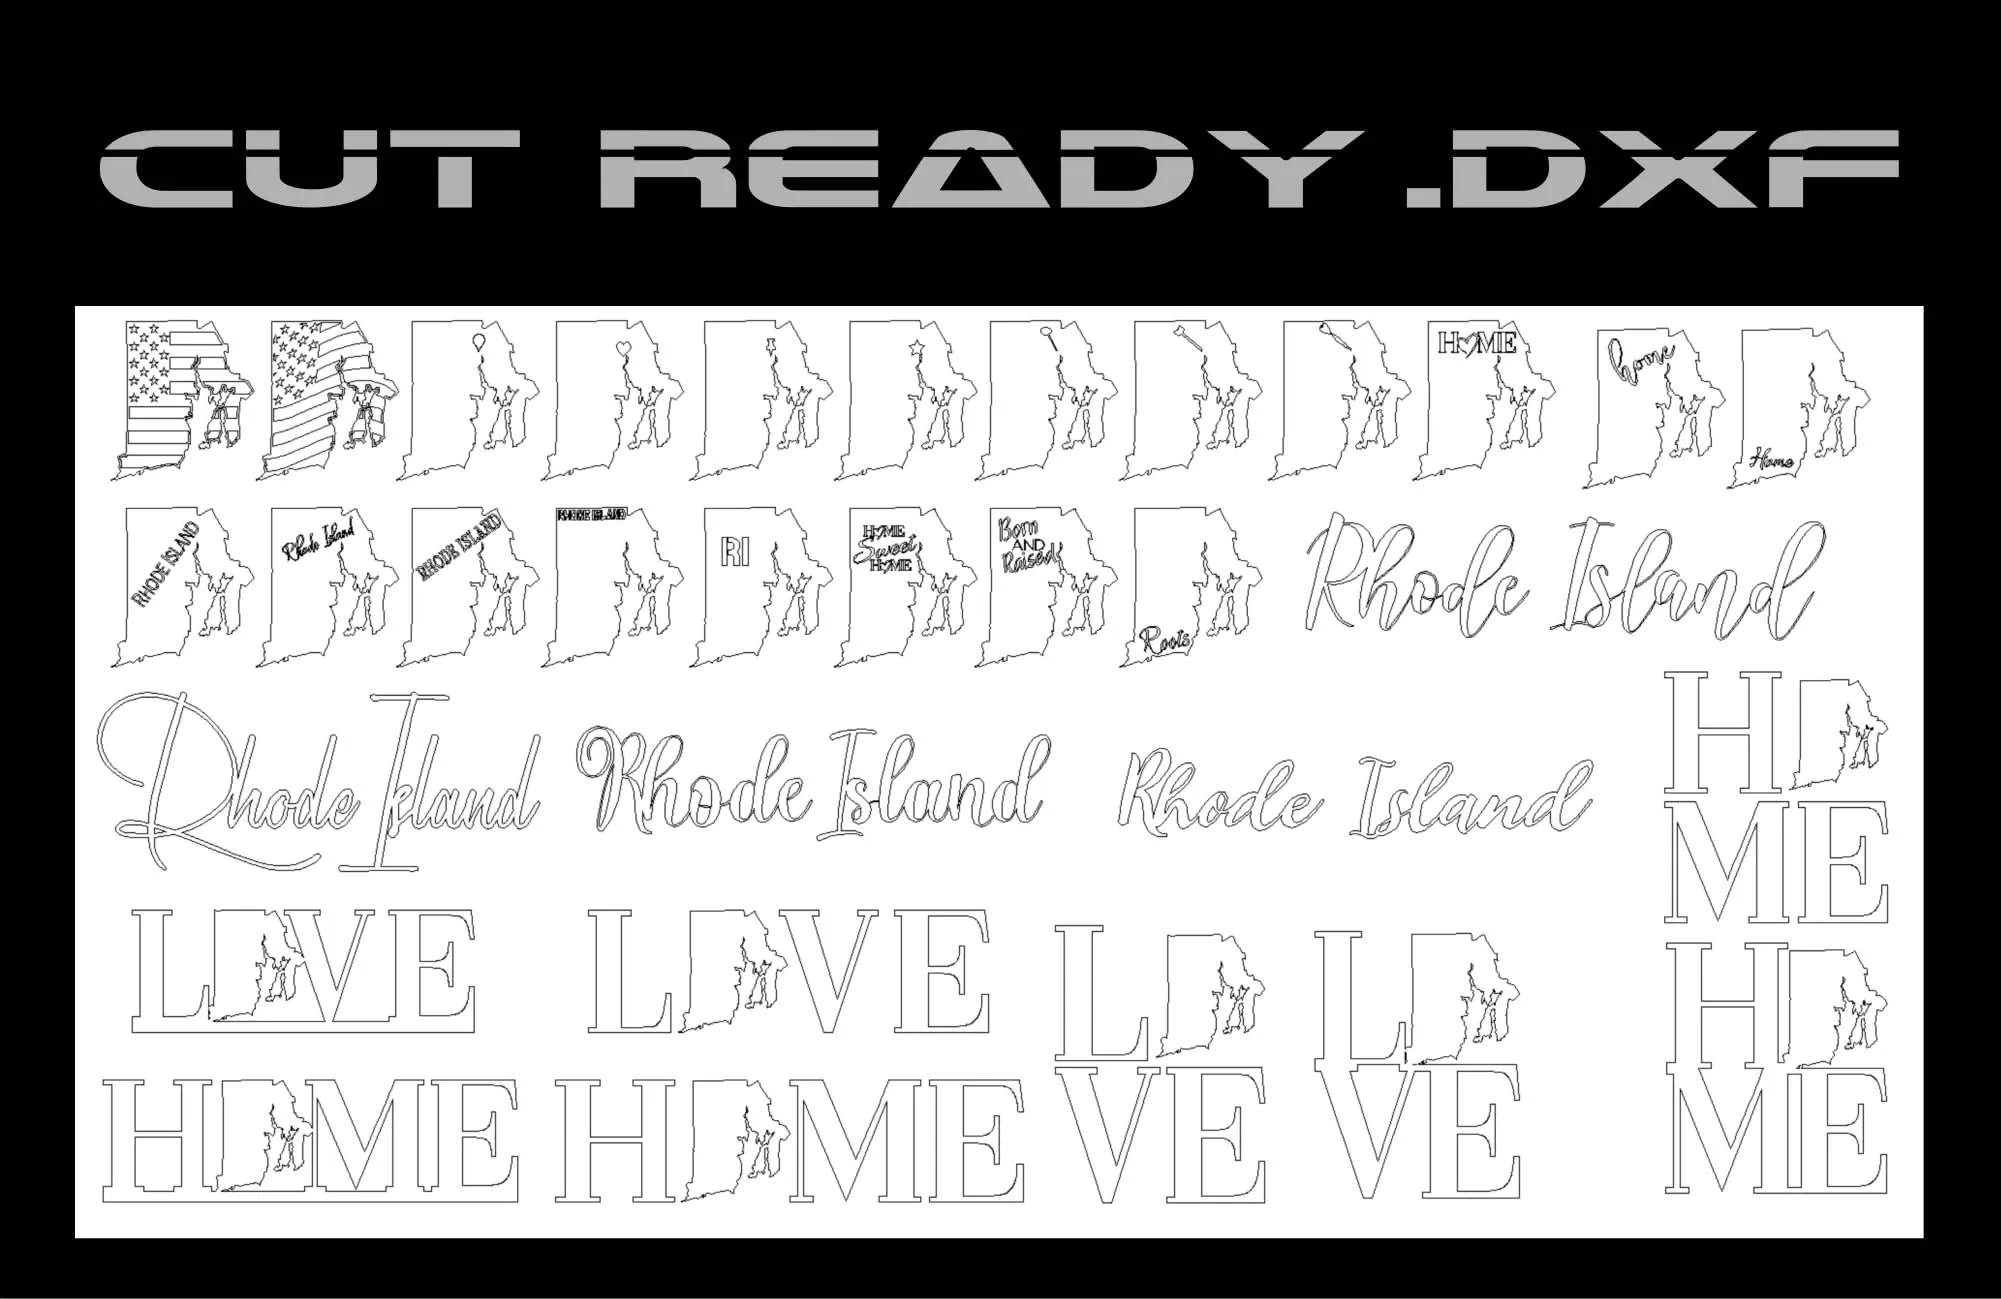 CUT READY .DXF
HOME
home
Home
RHODE ISLAND
Rhode Island
RHODE ISLAND
RHODE ISLAND
RI
HOME
Sweet
HOME
Born
AND
Raised
Roots
Rhode Island
Rhode Island
Rhode Island
Rhode Island
H
ME
L VE
L VE
L
VE
L
VE
H
ME
H ME
H ME